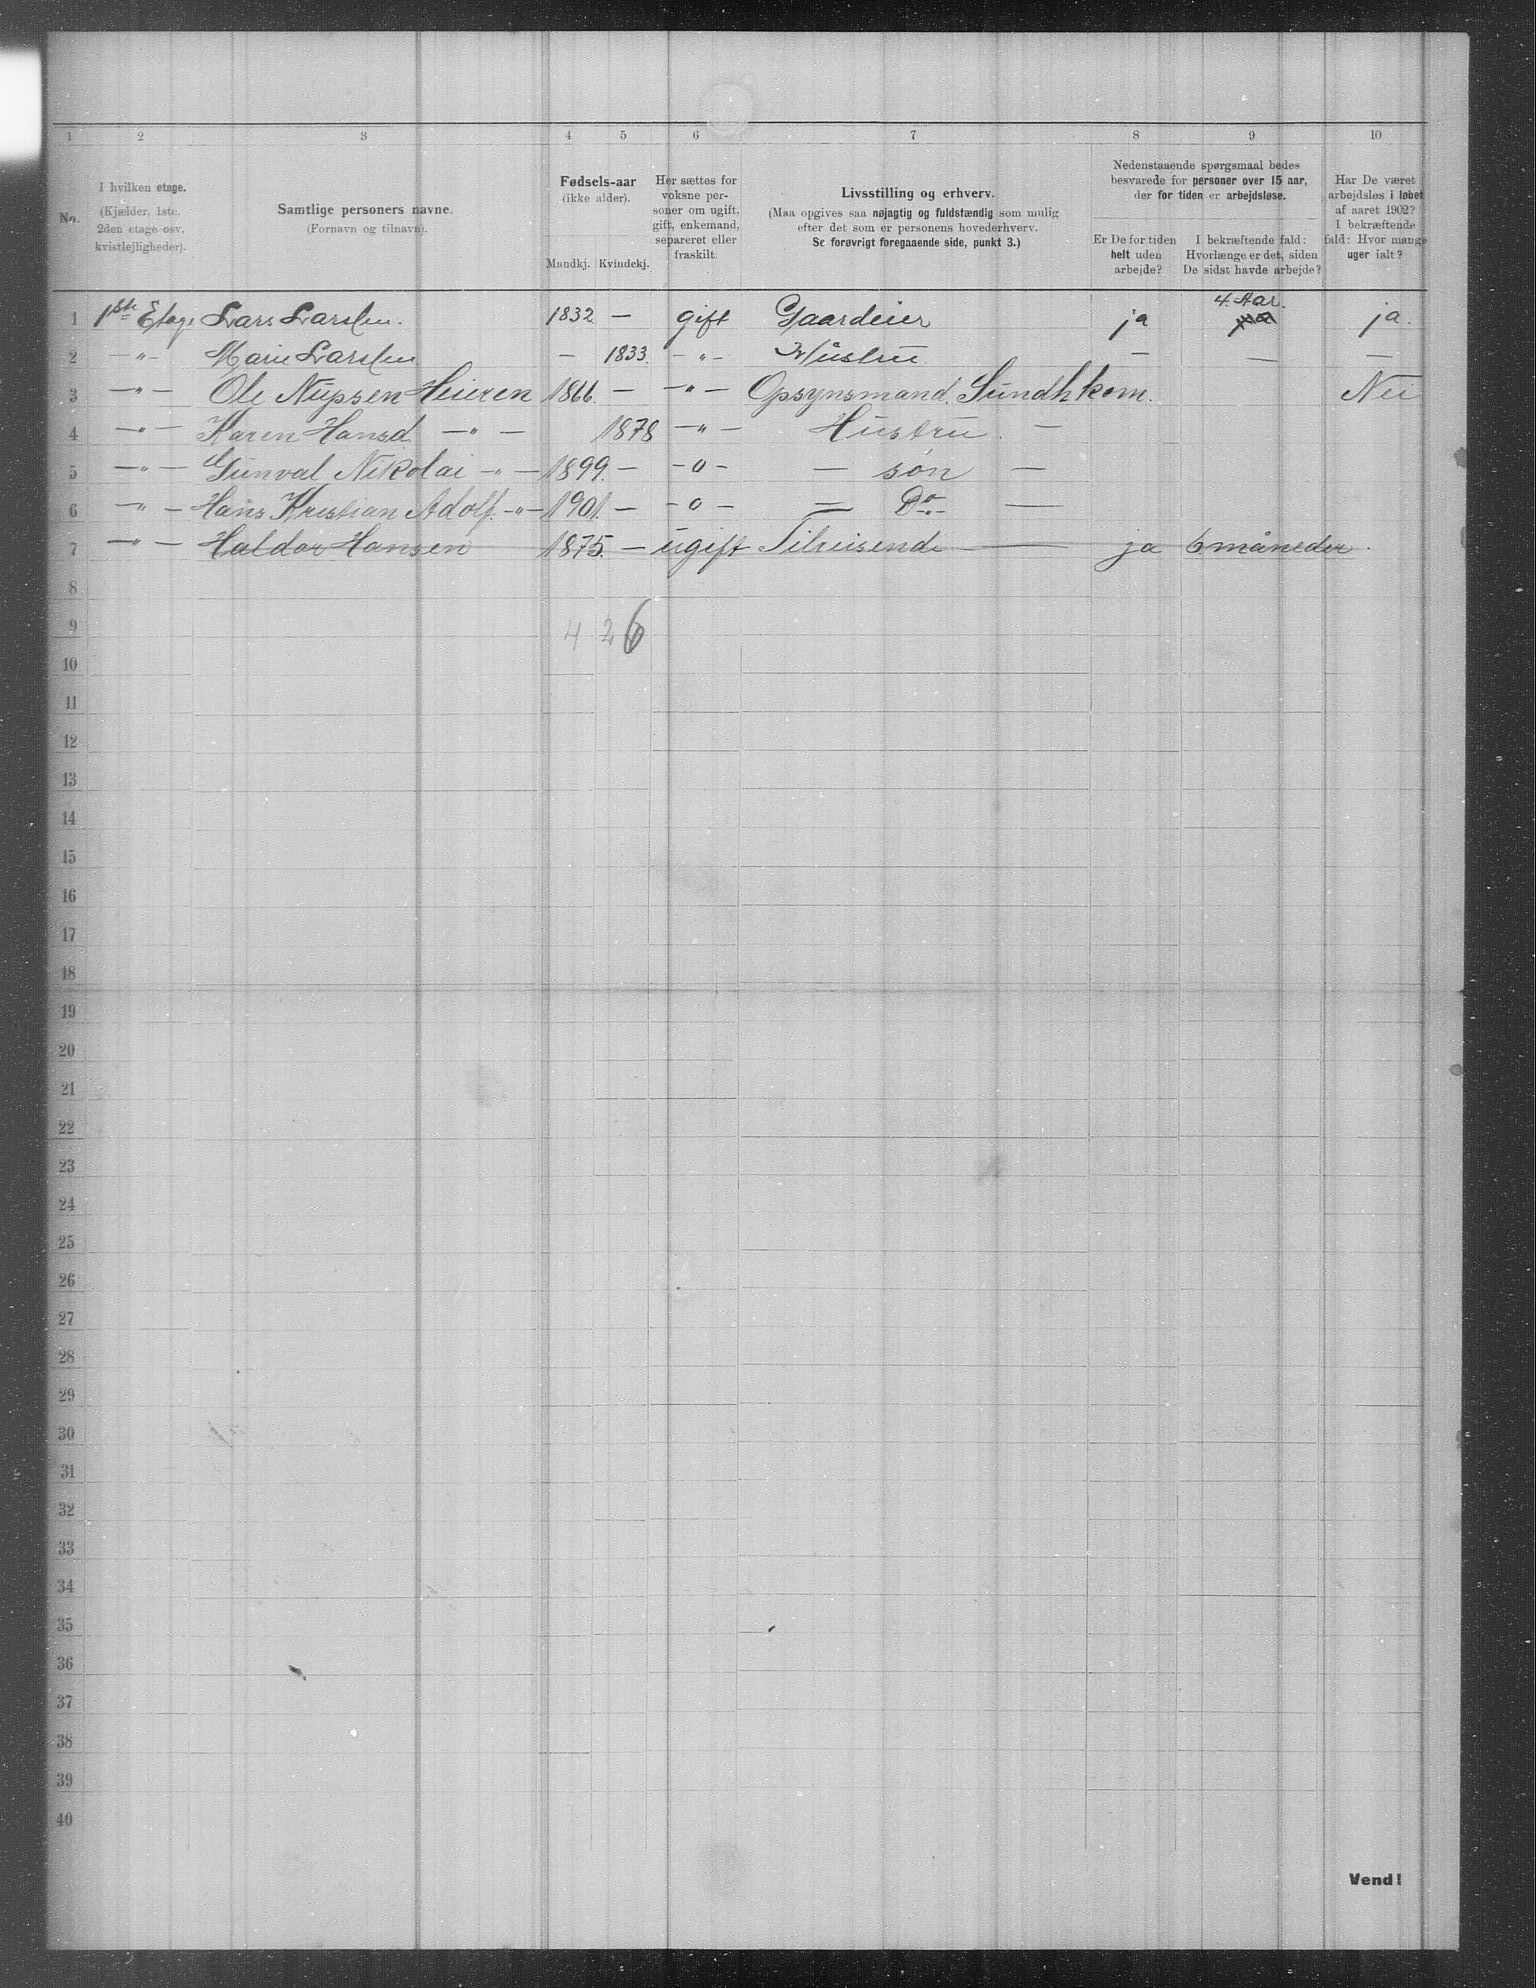 1 2 3 4 5 6 7 8 9 10
No.
I hvilken etage.
(Kjælder, 1ste.
2den etage osv.
kvistlejligheder).
Samtlige personers navne.
(Fornavn og tilnavn).
Fødsels-aar
(ikke alder).
Mandkj. Kvindekj.
Her sættes for
voksne per-
soner om ugift,
gift, enkemand,
separeret eller
fraskilt.
Livsstilling og erhverv.
(Maa opgives saa nøjagtig og fuldstændig som mulig
efter det som er personens hovederhverv.
Se forøvrigt foregaaende side, punkt 3.)
Nedenstaaende spørgsmaal bedes
besvarede for personer over 15 aar,
der for tiden er arbejdsløse.
Er De for tiden
helt uden
arbejde?
I bekræftende fald:
Hvorlænge er det, siden
De sidst havde arbejde?
Har De været
arbejdsløs i løbet
af aaret 1902?
I bekræftende
fald: Hvor mange
uger ialt?
1 1ste Etage Lars Larsen. 1832 — gift Gaardeier ja 4 Aar. ja.
2 —„— Marie Larsen — 1833. —„— Hustru — — —
3 —„— Ole Nupsen Heieren 1866. — —„— Opsynsmand. Sundhkom. Nei
4 —„— Karen Hansd —„— 1878 —„— Hustru. —
5 —„— Gunval Nikolai —„— 1899. — —o— — søn —
6 —„— Hans Kristian Adolf. —„— 1901. — —o— — Do —
7 —„— Haldor Hansen 1875. — ugift Tilreisende — ja 6 måneder.
8
9 4 2 6
10
11
12
13
14
15
16
17
18
19
20
21
22
23
24
25
26
27
28
29
30
31
32
33
34
35
36
37
38
39
40
Vend!